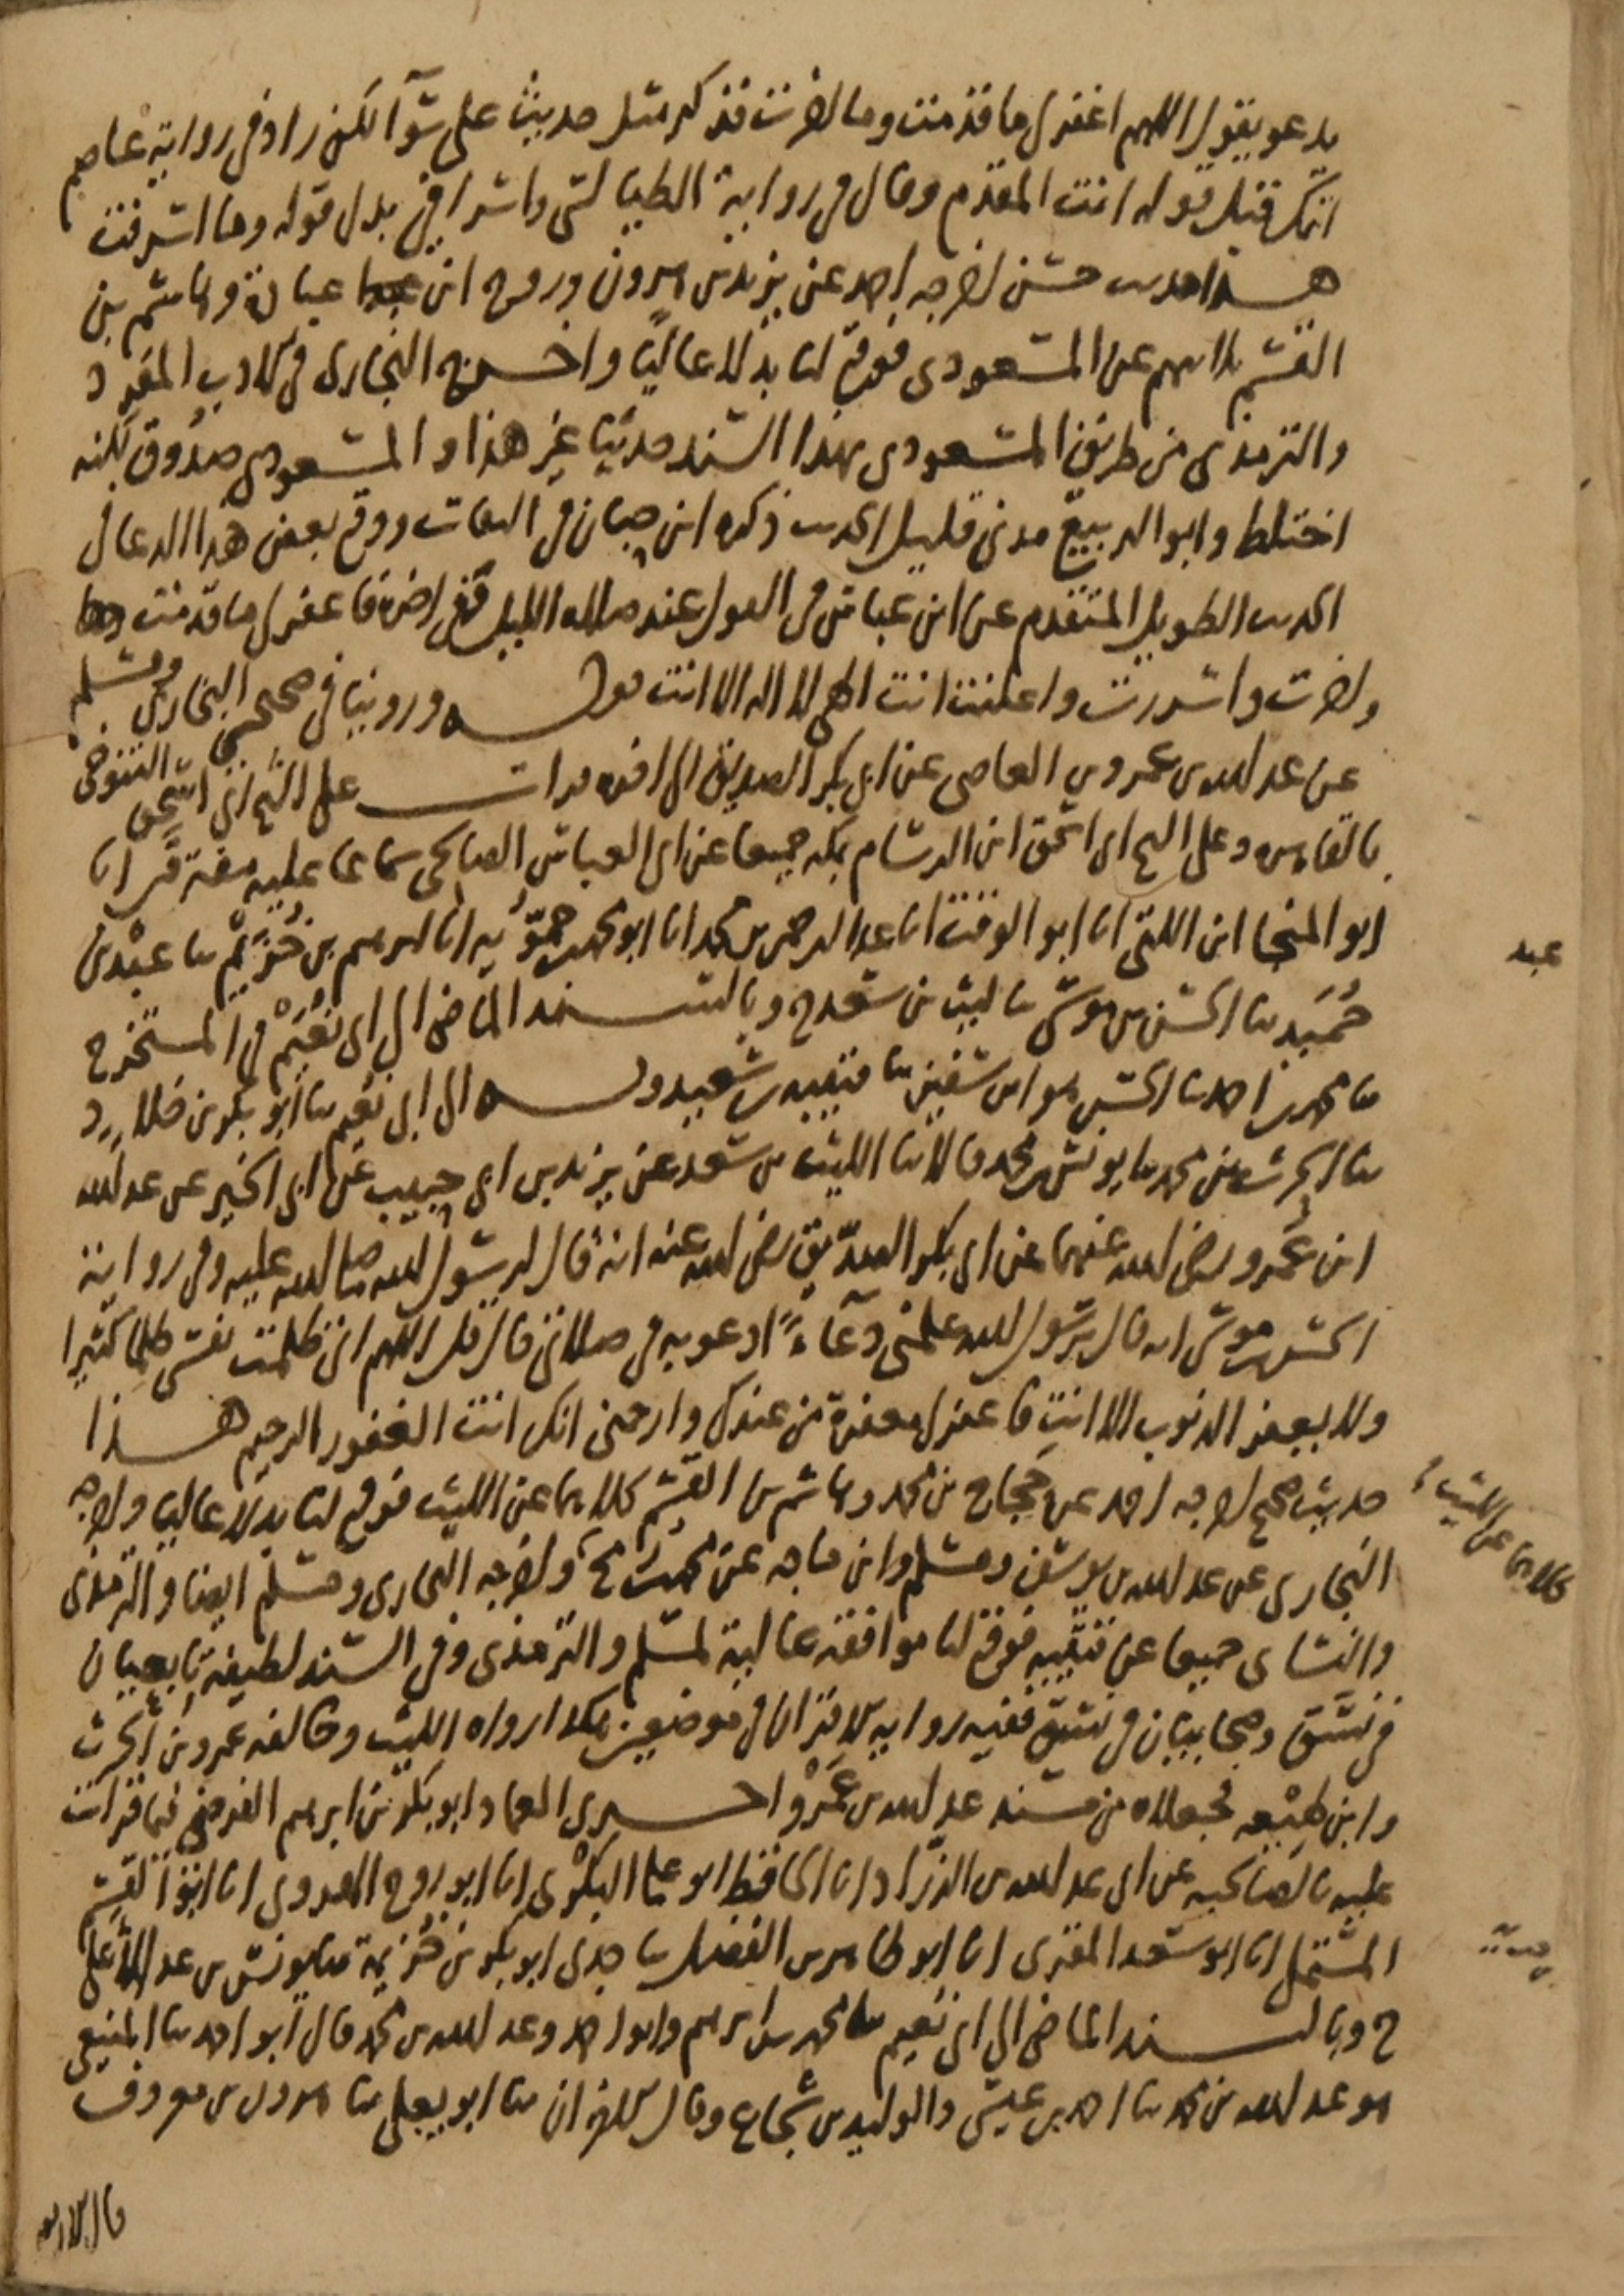 يدعو يقول اللهم اغفر لي ما قدمت وما اخرت فذكر مثل حديث علي سوآ لكن زاد في رواية عاصم
انك قبل قوله انت المقدم وقال في رواية الطيالسي واسرافي بدل قوله وما اسرفت
هذا حديث حسن اخرجه احمد عن يزيد بن هرون وروح ابن عبادة وهاشم بن
القسم ثلاثتهم عن المسعودي فوقع لنا بدلا عاليا واخرج البخاري في الادب المفرد
والترمذي من طريق المسعودي بهذا السند حديثا غير هذا والمسعودي صدوق لكنه
اختلط وابو الربيع مدني قليل الحديث ذكره ابن حبان في الثقات ووقع بعض هذا الدعا في
الحديث الطويل المتقدم عن ابن عباس في القول عند صلاة الليل ففي اخره فاغفر لي ما قدمت وما
واخرت واسررت واعلنت انت الهي لا اله الا انت قوله وروينا في صحيحي البخاري ومسلم
عن عبد الله بن عمرو بن العاصي عن ابي بكر الصديق الى اخره قرات على الشيخ ابي اسحق التنوخي
بالقاهره وعلى الشيخ ابي اسحق ابن الرسام بمكه جميعا عن ابي العباس الصالحي سماعا عليه مفترقا انا
ابو المنجا ابن اللتي انا ابو الوقت انا عبد الرحمن بن محمد انا ابو محمد بن حمويه انا ابرهيم بن خزيم ثنا عبد بن
حميد ثنا الحسن بن موسى ثنا ليث بن سعد ح وبالسند الماضي الى ابي نعيم في المستخرج
ثنا محمد بن احمد ثنا الحسن هو ابن سفين ثنا قتيبه بن سعيد وبه الى ابي نعيم ثنا ابو بكر بن خلاد
ثنا الحرث بن محمد ثنا يونس بن محمد قالا ثنا الليث بن سعد عن يزيد بن ابي حبيب عن ابي الخير عن عبد الله
ابن عمرو رضي الله عنهما عن ابي بكر الصديق رضي الله عنه انه قال لرسول الله صلى الله عليه وفي رواية
الحسن بن موسى انه قال يرسول الله علمني دعآء ادعو به في صلاتي قال قل اللهم اني ظلمت نفسي ظلما كثيرا
ولا يغفر الذنوب الا انت فاغفر لي مغفرة من عندك وارحمني انك انت الغفور الرحيم هذا
حديث صحيح اخرجه احمد عن حجاج بن محمد وهاشم بن القسم كلاهما عن الليث فوقع لنا بدلا عاليا واخرجه
كلاهما عن الليث
البخاري عن عبد الله بن يوسف ومسلم وابن ماجه عن محمد بن رمح واخرجه البخاري ومسلم ايضا والترمذي
والنساى جميعا عن قتيبه فوقع لنا موافقة عالية لمسلم والترمذي وفي السند لطيفة تابعيان
في نسق وصحابيان في نسق ففيه رواية الاقران في موضعين هكذا رواه الليث وخالفه عمرو بن الحرث
وابن لهيعه فجعلاه من مسند عبد الله بن عمرو اخبرني العماد ابو بكر بن ابرهيم الفرضي فيما قرات
عليه بالصالحيه عن ابي عبد الله بن الزراد انا الحافظ ابو علي البكري انا ابو روح الهروي انا ابو القسم
المستملي انا ابو سعد المقري انا ابو طاهر بن الفضل ثنا جدي ابو بكر بن خزيمة ثنا يونس بن عبد الاعلى
ح وبالسند الماضي الى ابي نعيم ثنا محمد بن ابرهيم وابو احمد وعبد الله بن محمد قال ابو احمد ثنا المنيعي
هو عبد الله بن محمد ثنا احمد بن عيسى والوليد بن شجاع وقال الاخران ثنا ابو يعلى ثنا هرون بن معروف
عبد
قالا